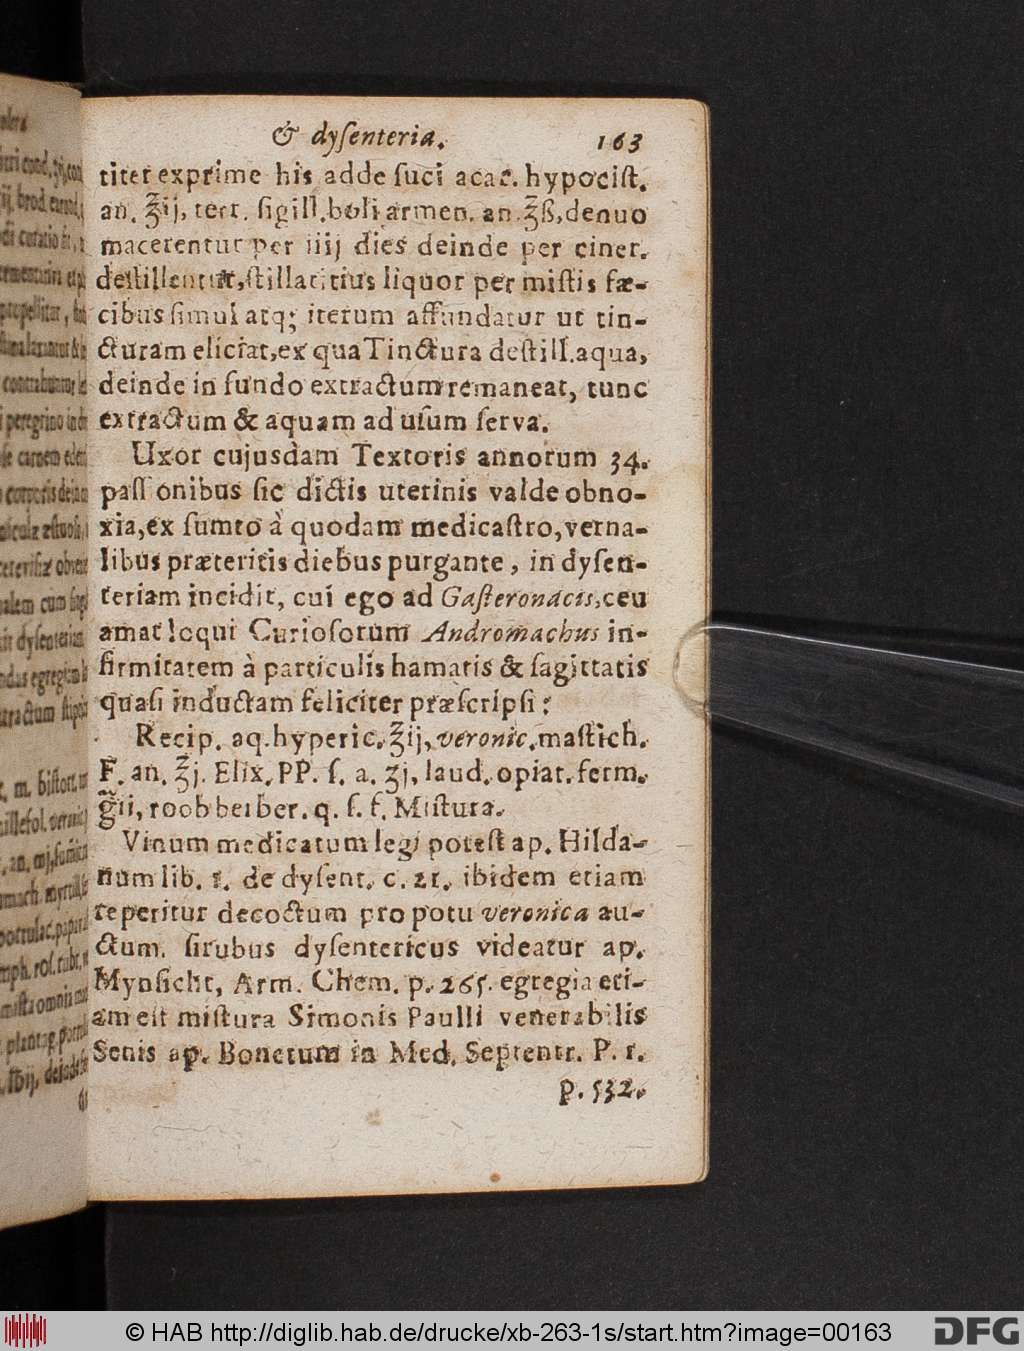 & dyſenteria. 163
titer exprime his adde ſuci acac. hypociſt.
an. ℥ij, terr. ſigill. boli armen. an. ℥ß, denuo
macerentur per iiij dies deinde per ciner.
deſtillentur, ſtillatitius liquor per miſtis fæ-
cibus ſimul atq; iterum affundatur ut tin-
cturam eliciat, ex qua Tinctura deſtill. aqua,
deinde in fundo extractum remaneat, tunc
extractum & aquam ad uſum ſerva.
Uxor cujusdam Textoris annorum 34.
paſſionibus ſic dictis uterinis valde obno-
xia, ex ſumto à quodam medicaſtro, verna-
libus præteritis diebus purgante, in dyſen-
teriam incidit, cui ego ad Gaſteronacis, ceu
amat loqui Curioſorum Andromachus in-
firmitatem à particulis hamatis & ſagittatis
quaſi inductam feliciter præſcripſi:
Recip. aq. hyperic. ℥ij, veronic. maſtich.
F. an. ℥j. Elix. PP. ſ. a. ʒj, laud. opiat. ferm.
g̃ii, roob berber. q. ſ. f. Miſtura.
Vinum medicatum legi poteſt ap. Hilda-
num lib. 1. de dyſent. c. 21. ibidem etiam
reperitur decoctum pro potu veronica au-
ctum. ſirubus dyſentericus videatur ap.
Mynſicht, Arm. Chem. p. 265. egregia eti-
am eſt miſtura Simonis Paulli venerabilis
Senis ap. Bonetum in Med. Septentr. P. 1.
p. 532.
© HAB http://diglib.hab.de/drucke/xb-263-1s/start.htm?image=00163
DFG